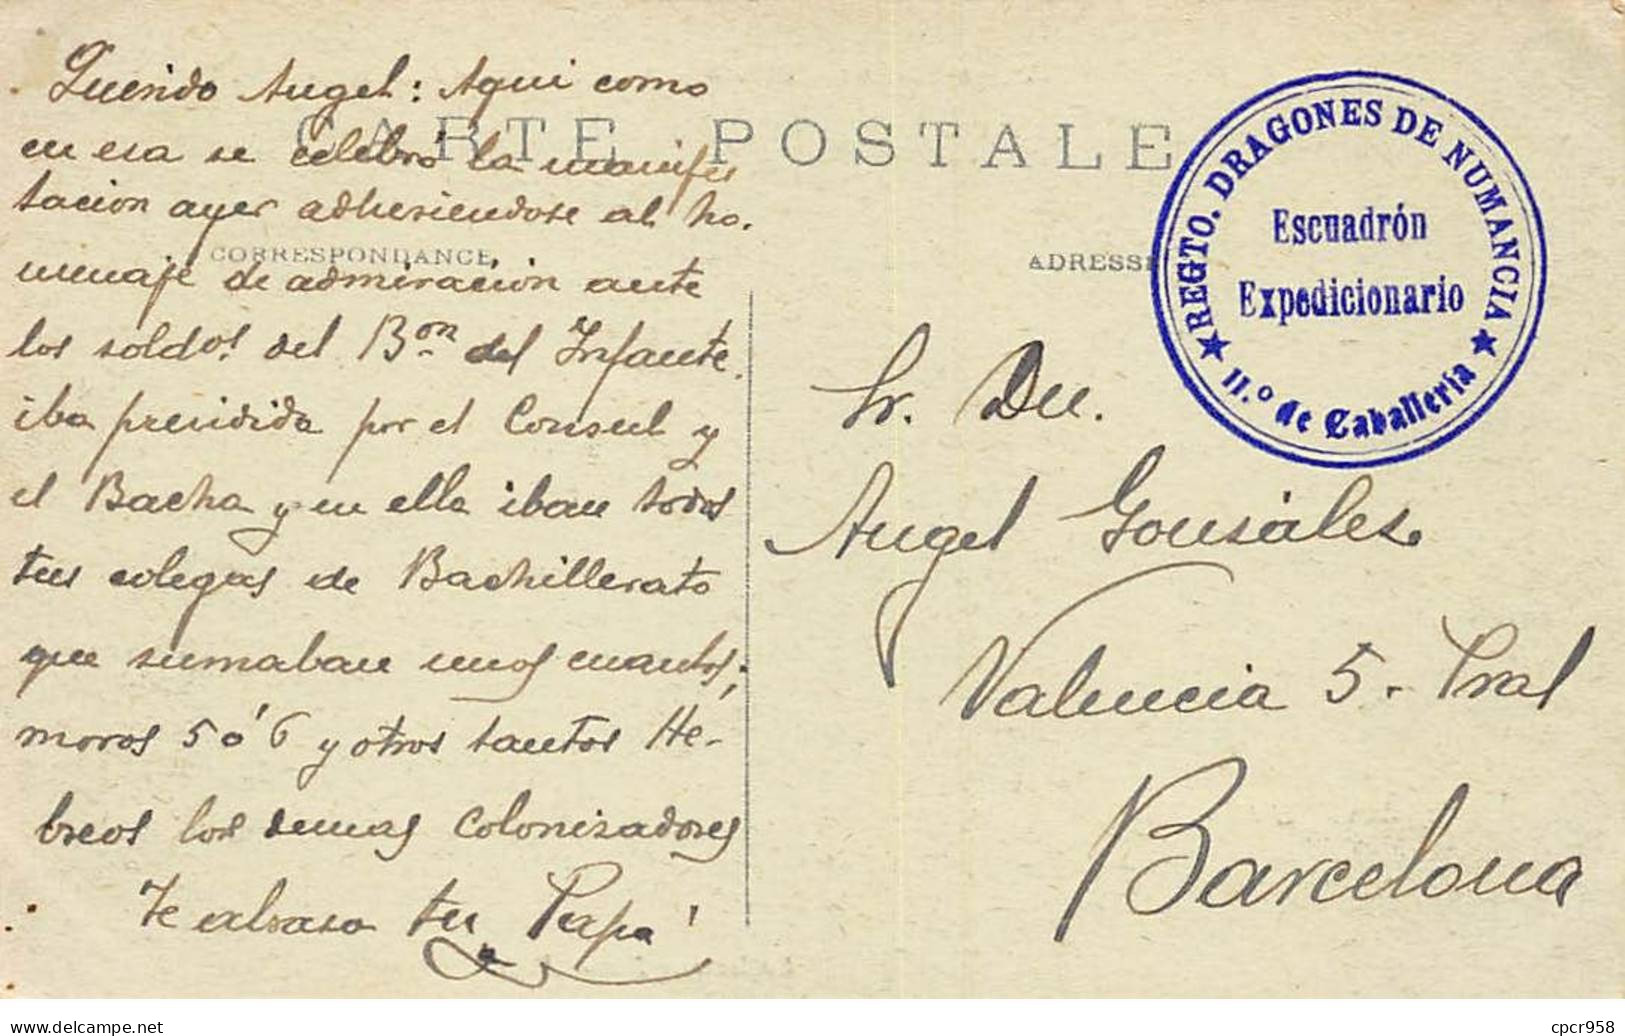 CARTE POSTALE
CORRESPONDANCE
Querido Angel: Aqui como
en esa se celebró la manifes
tacion ayer adhesiendose al ho.
menaje de admiración ante
los soldos. del Bon. del Infante.
iba presidida por el Consul y
el Bacha y en ella iban todos
tus colegas de Bachillerato
que sumaban unos cuantos;
moros 5 ó 6 y otros tantos He-
breos los demas colonizadores
Te abraza tu Papá
ADRESSE
REGTO. DRAGONES DE NUMANCIA
Escuadrón
Expedicionario
★ 11.º de Caballería ★
Sr. Dn.
Angel Gonsáles
Valencia 5 - Pral
Barcelona
cpcr958